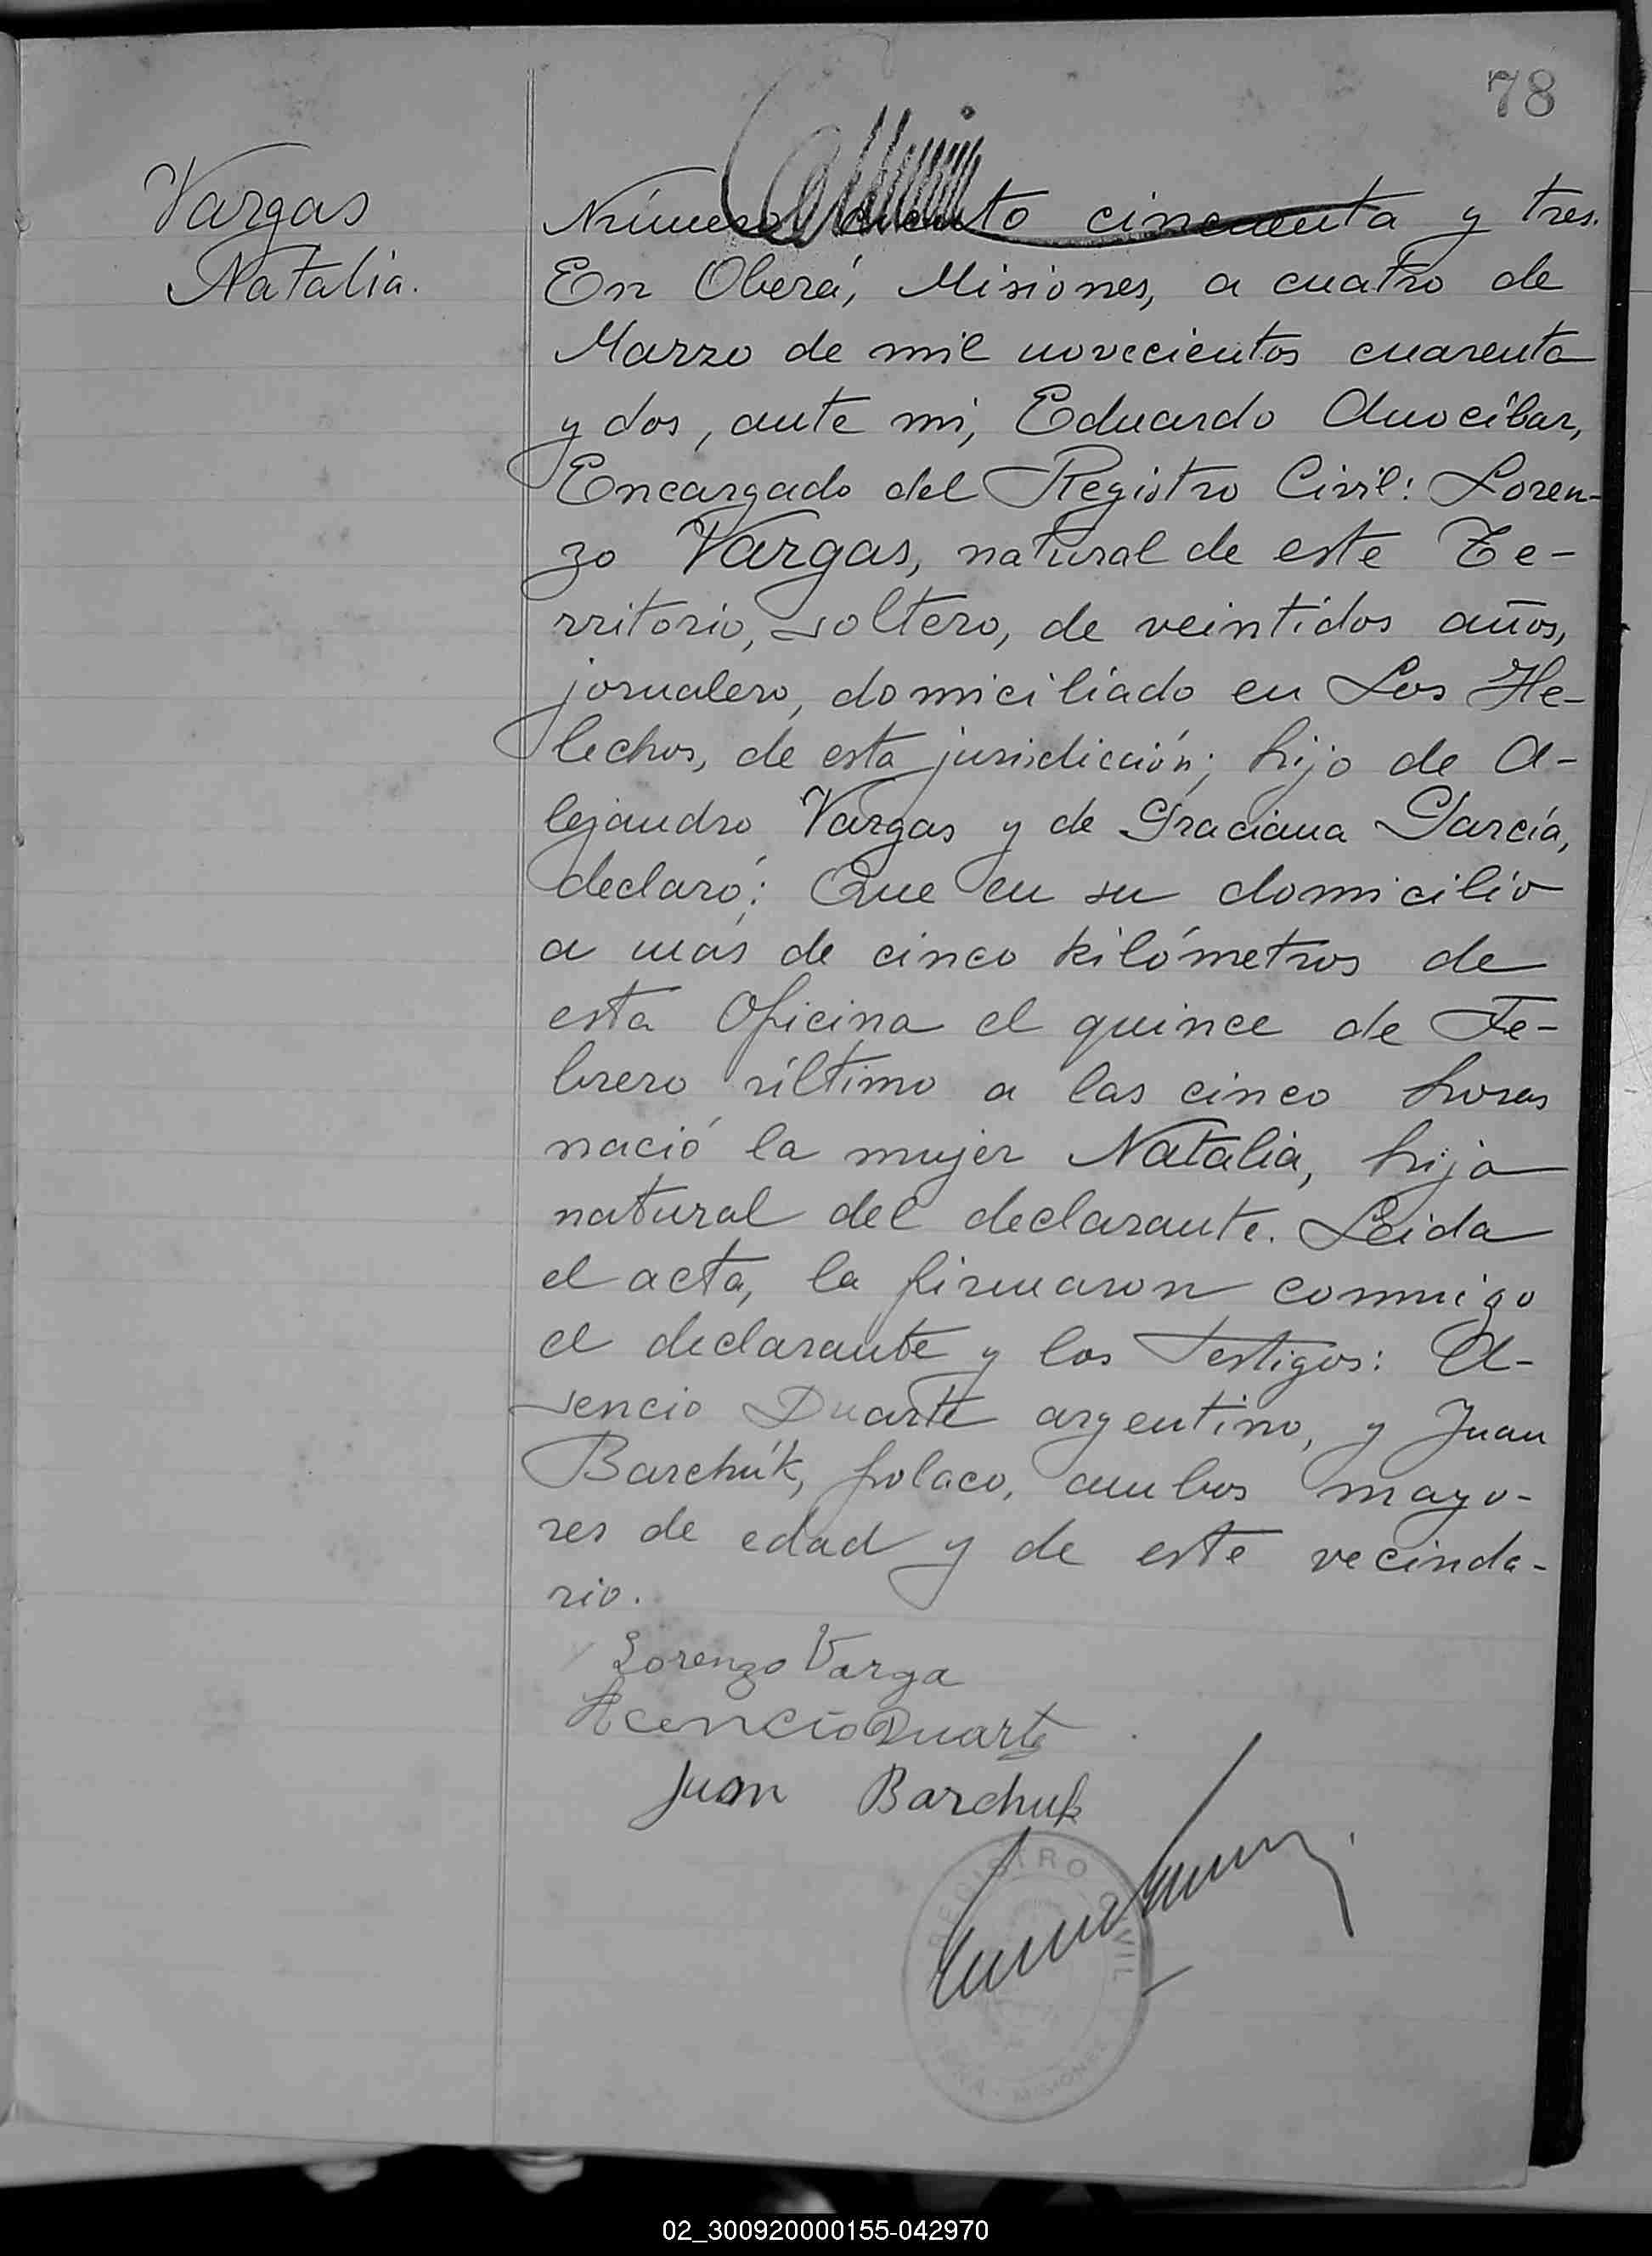 78
Vargas
Natalia.
Número ciento cincuenta y tres.
En Oberá, Misiones, a cuatro de
Marzo de mil novecientos cuarenta
y dos, ante mi, Eduardo Anocíbar,
Encargado del Registro Civil: Loren-
zo Vargas, natural de este Te-
rritorio, soltero, de veintidos años,
jornalero, domiciliado en Los He-
lechos, de esta jurisdicción; hijo de A-
lejandro Vargas y de Graciana García,
declaró: Que en su domicilio
a más de cinco kilómetros de
esta Oficina el quince de Fe-
brero último a las cinco horas
nació la mujer Natalia, hija
natural del declarante. Leida
el acta, la firmaron conmigo
el declarante y los testigos: A-
sencio Duarte argentino, y Juan
Barchúk, polaco, ambos mayo-
res de edad y de este vecinda-
rio.
Lorenzo Varga
Acencio Duarte
Juan Barchuk
REGISTRO CIVIL
MISIONES
02_300920000155-042970